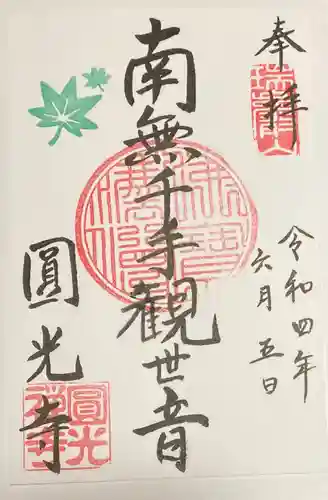 奉拝
令和四年
六月五日
南無千手観世音
圓光寺
瑞巖山
圓光禅寺